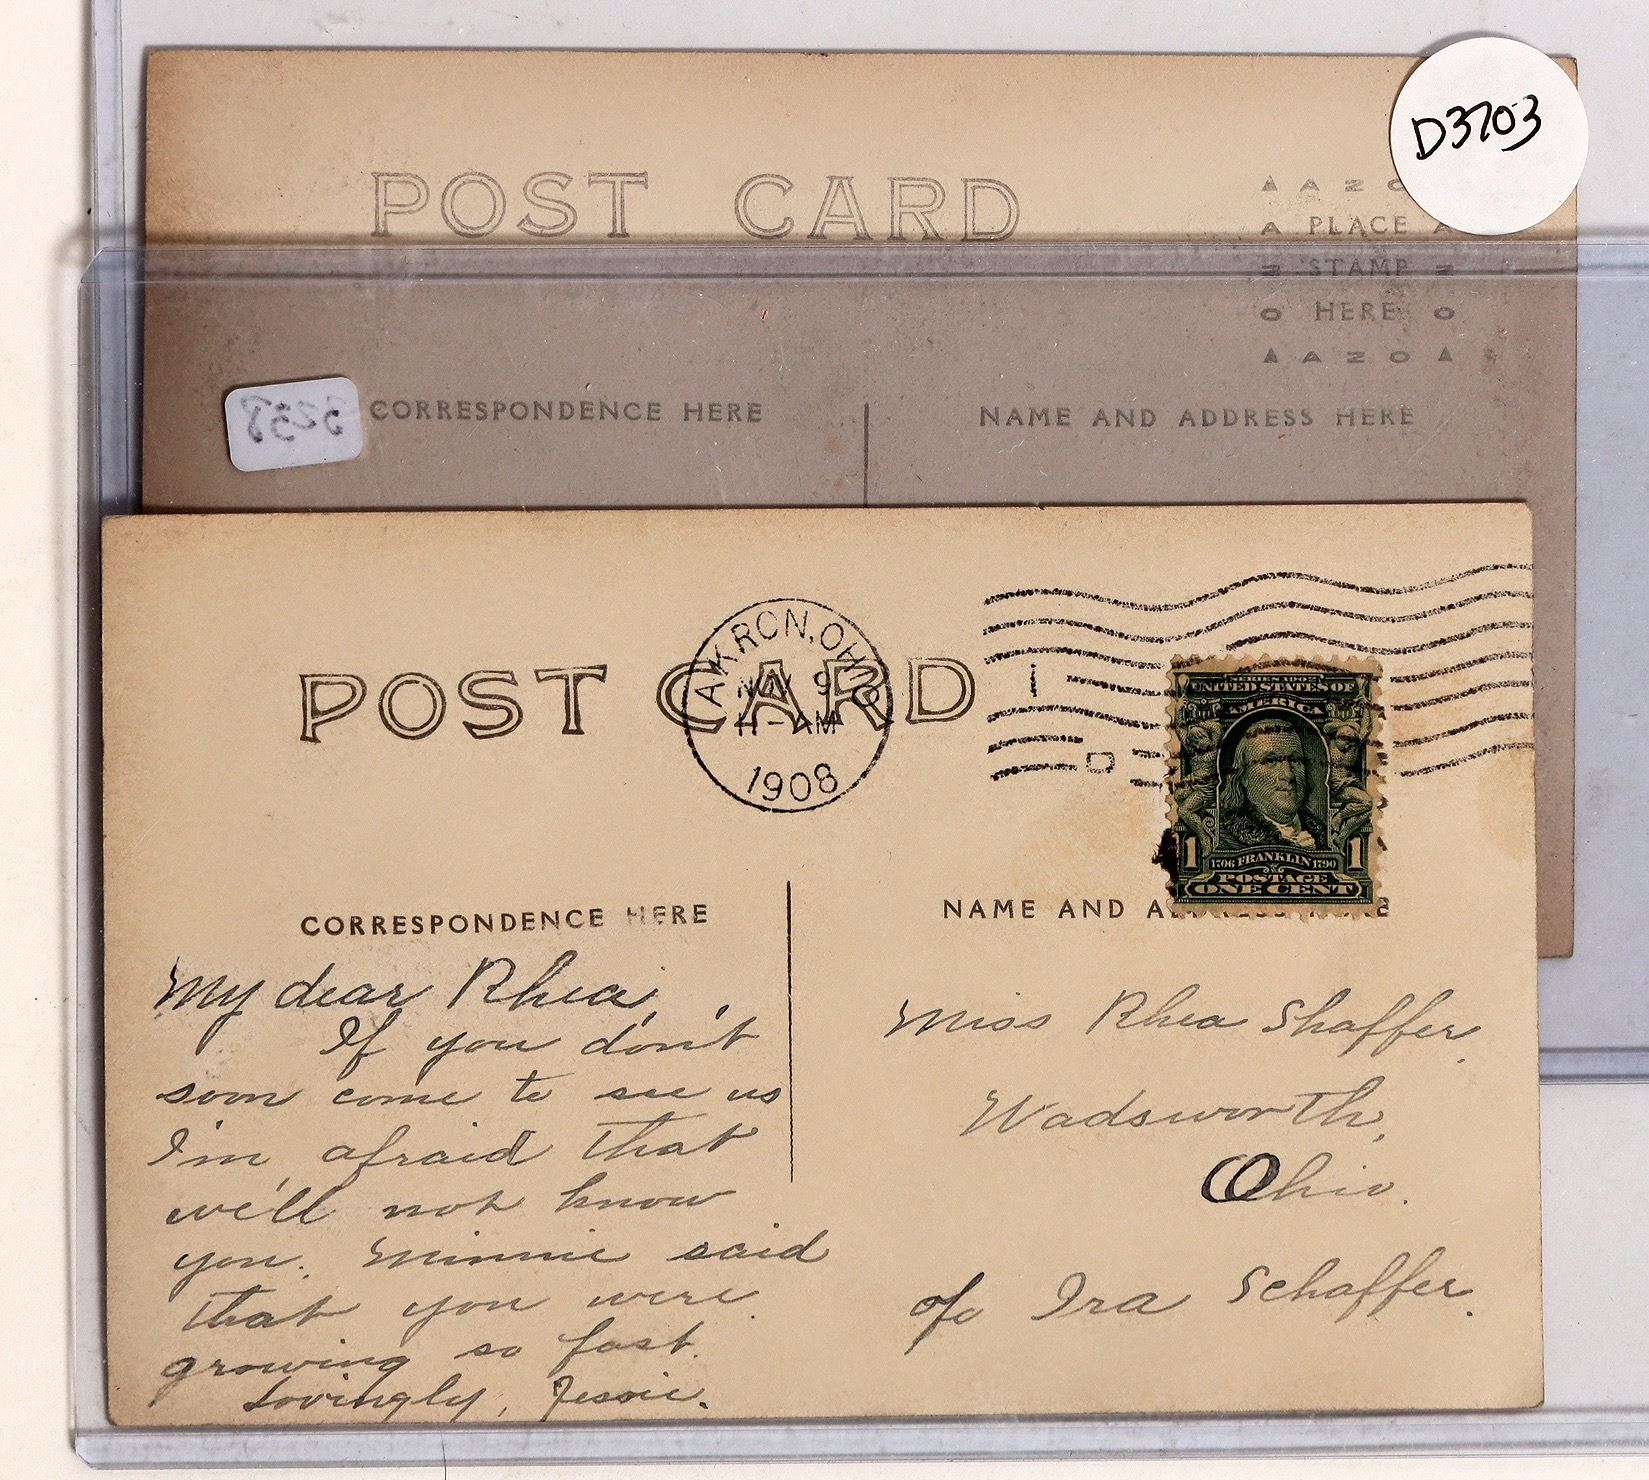 D3703
POST CARD
▲ A Z O
A PLACE A
Z STAMP Z
O HERE O
▲ A Z O ▲
CORRESPONDENCE HERE
NAME AND ADDRESS HERE
POST CARD
AKRON, OHIO
9
11-AM
1908
SERIES 1902
UNITED STATES OF
AMERICA
1 1706 FRANKLIN 1790 1
POSTAGE
ONE CENT
CORRESPONDENCE HERE
NAME AND ADDRESS HERE
My dear Rhea,
If you don't
soon come to see us
I'm afraid that
we'll not know
you. Minnie said
that you were
growing so fast.
Lovingly, Jessie.
Miss Rhea Shaffer,
Wadsworth,
Ohio.
c/o Ira Schaffer.